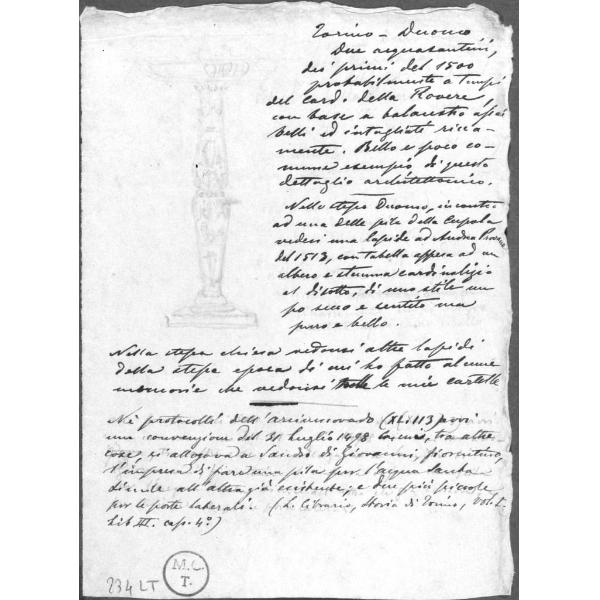 Torino - Duomo
Due acquasantini,
dei primi del 1500
probabilmente a tempi
del Card. della Rovere,
con base a balaustro assai
belli ed intagliati ricca-
mente. Bello e poco co-
mune esempio di questo
dettaglio architettonico.
Nello stesso Duomo, incontro
ad una delle pile della Cupola
vedesi una lapide ad Andrea
del 1513, con tabella appesa ad un
albero e stemma cardinalizio
al disotto, di uno stile un
po secco e sentito ma
puro e bello.
Nella stessa chiesa vedonsi altre lapidi
della stessa epoca di cui ho fatto alcune
memorie che vedonsi le mie cartelle
Nei protocolli dell'arcivescovado (XLI. 113) avvi
una convenzione del 31 luglio 1498 tra altre
cose, si allogava a Sandro di Giovanni, fiorentino,
l'impresa di fare una pila per l'acqua santa
simile all'altra già esistente, e due più piccole
per le porte laterali. (L. Cibrario, Storia di Torino, Vol. I.
Lib. III. cap. 4º)
M.C.
T.
234 LT